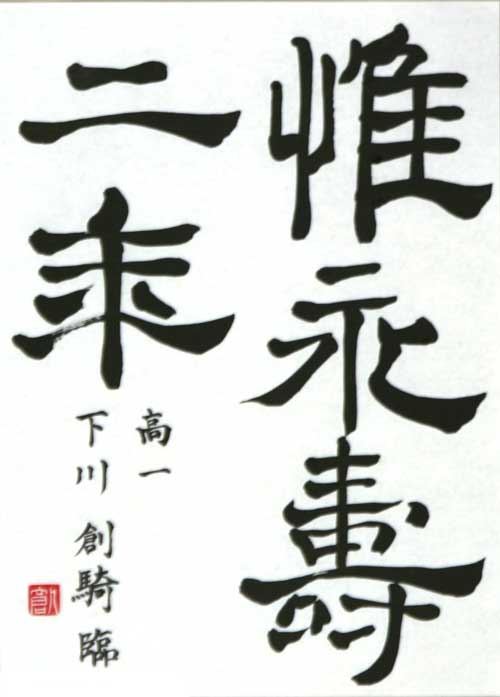 惟永壽
二年
高一
下川 創騎 臨
創